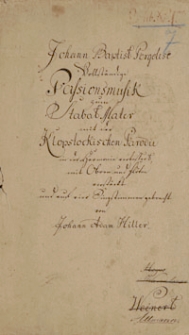 Johann Baptist Pergolesi
Vollständige
Passionsmusik
zum
Stabat Mater
mit der
Klopstockischen Parodie
in der Harmonie verbessert,
mit Oboen und Flöten
verstärkt
und auf vier Singstimmen gebracht
von
Johann Adam Hiller.
Weinert